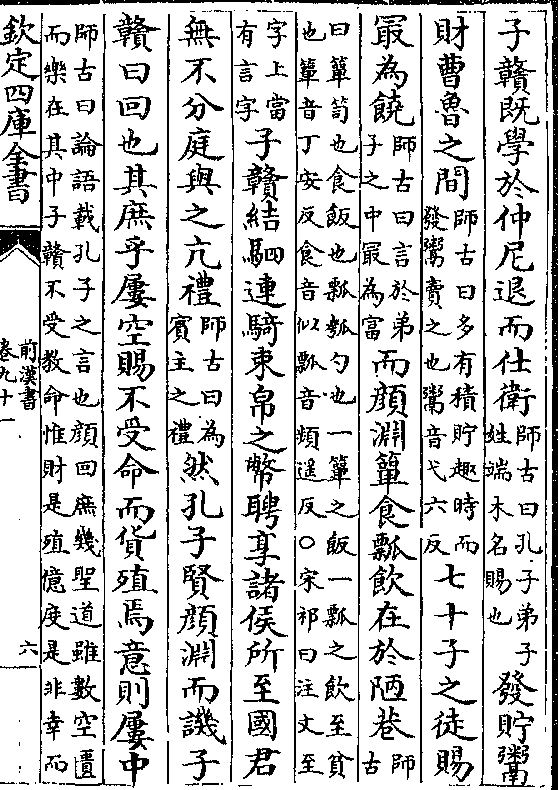 子贛既學於仲尼退而仕衛師古曰孔子弟子姓端木名賜也發貯鬻
財曹魯之間師古曰多有積貯趣時而發鬻賣之也鬻音弋六反七十子之徒賜
冣為饒師古曰言於弟子之中冣為富而顔淵簞食瓢飲在於陋巷師古
曰簞笥也食飯也瓢瓠勺也一簞之飯一瓢之飲至貧也簞音丁安反食音似瓢音頻遥反○宋祁曰注文至
字上當有言字子贛結駟連騎束帛之幣聘享諸侯所至國君
無不分庭與之亢禮師古曰為賓主之禮然孔子賢顔淵而譏子
贛曰回也其庶乎屢空賜不受命而貨殖焉意則屢中
師古曰論語載孔子之言也顔回庶幾聖道雖數空匱而樂在其中子贛不受教命惟財是殖億度是非幸而
欽定四庫全書
前漢書
卷九十一
六